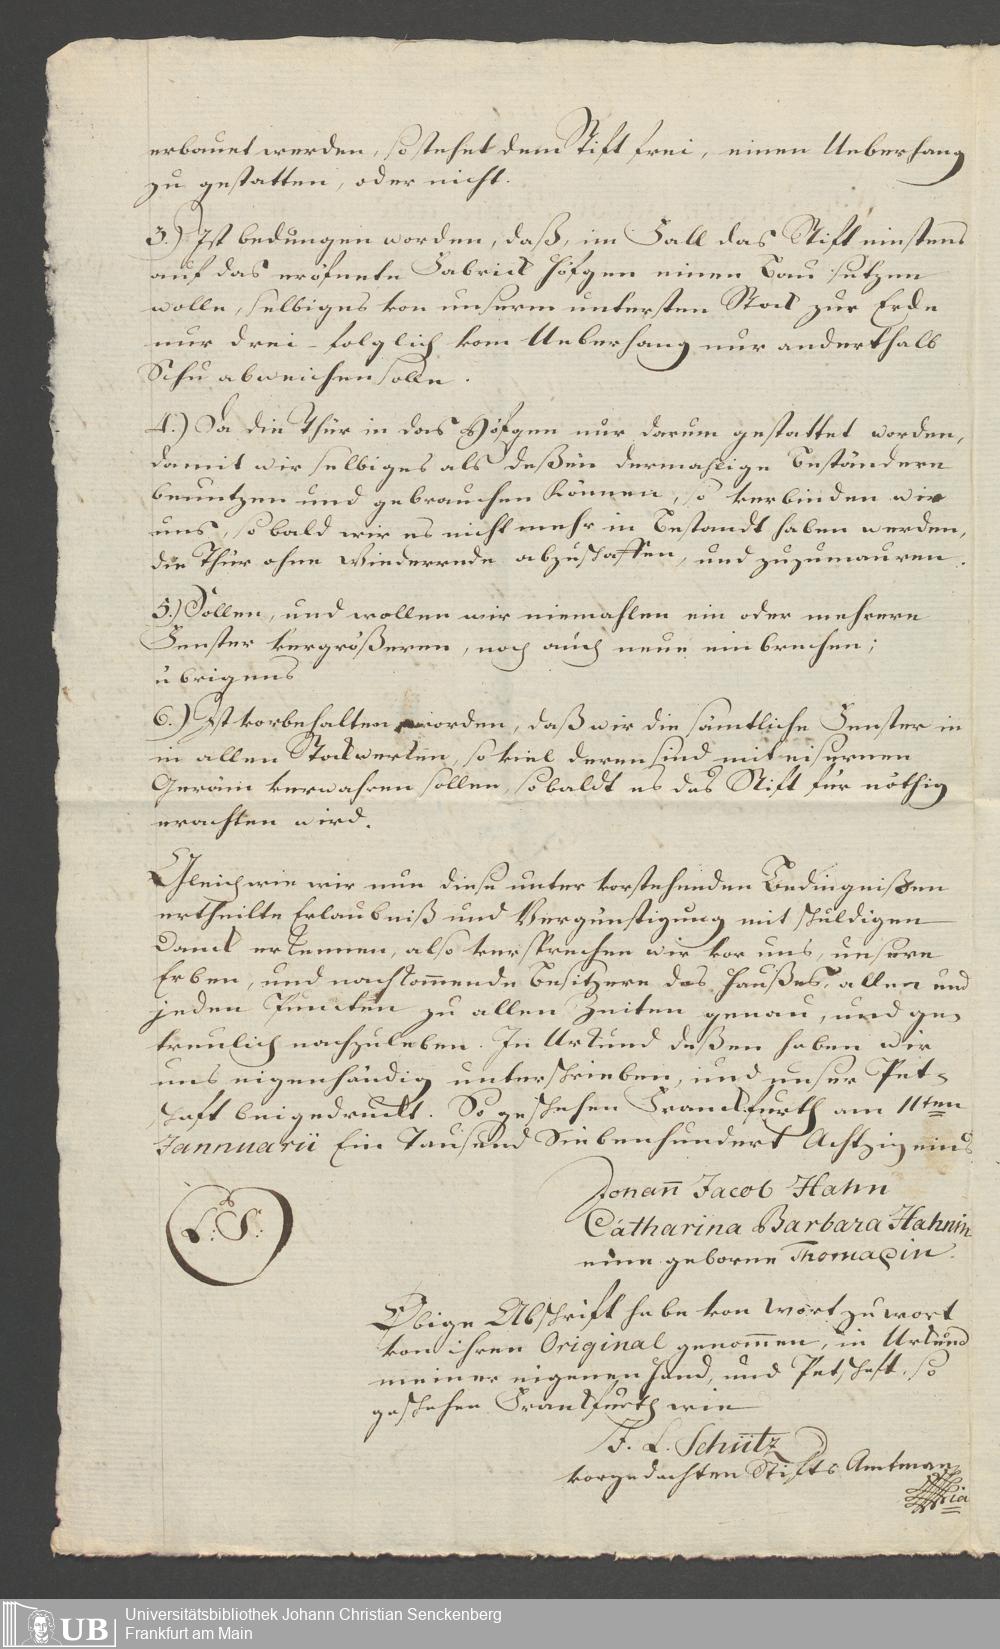 erbauet werden, so stehet dem Stift frei, einen Ueberhang
zu gestatten, oder nicht.
3.) Ist bedungen worden, daß, im Fall das Stift einstens
auf das eröfnete Fabrick Höfgen einen Bau setzen
wolle, selbiges von unserm untersten Stock zur Erde
nur drei- folglich vom Ueberhang nur anderthalb
Schu abweichen solle.
4.) Da die Thür in das Höfgen nur darum gestattet worden,
damit wir selbiges als deßen dermahlige Beständere
benutzen und gebrauchen können, so verbinden wir
uns, sobald wir es nicht mehr in Bestandt haben werden,
die Thür ohne Wiederrede abzuschaffen, und zuzumauren.
5.) Sollen, und wollen wir niemahlen ein oder mehrere
Fenster vergrößeren, noch auch neue einbrechen;
übrigens
6.) Ist vorbehalten worden, daß wir die sämtliche Fenster in
in allen Stockwerken, so viel deren sind mit eisernen
Geräm verwahren sollen, sobaldt es das Stift für nöthig
erachten wird.
Gleichwie wir nun diese unter vorstehenden Bedingnißen
ertheilte Erlaubniß und Vergünstigung mit schuldigen
Danck erkennen, also versprechen wir vor uns, unsere
Erben, und nachkom̄ende Besitzere des Haußes, allen und
jeden Puncten zu allen Zeiten genau, und ge-
treulich nachzuleben. In Urkund deßen haben wir
uns eigenhändig unterschrieben, und unser Pet-
schaft beigedruckt. So geschehen Franckfurth am 11ten
Jannuarii Ein Tausend Siebenhundert Achtzig eins
Johan̄ Jacob Hahn
L: S:
Catharina Barbara Hahnin
eine geborne Thomasin.
Obige Abschrift habe von Wort zu Wort
von ihren Original genom̄en, in Urkund
meiner eigenen Hand, und Petschaft. so
geschehen Franckfurth wie
F. L. Schütz
vorgedachten Stifts Amtman
Universitätsbibliothek Johann Christian Senckenberg
UB
Frankfurt am Main